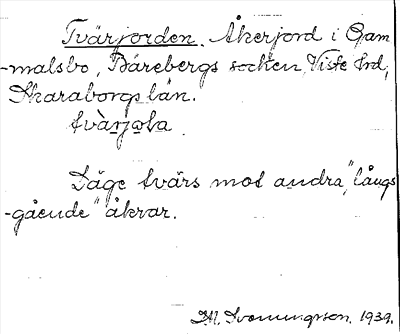 Tvärjorden. Åkerjord i Gam
-malsbo, Bårebergs socken, Viste hrd,
Skaraborgs län.
tvàrjo̱ḷa
Läge tvärs mot andra „långs
-gående" åkrar.
1939.